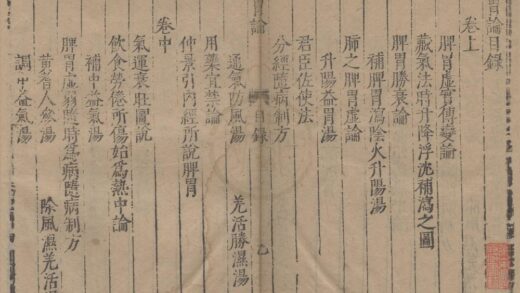 胃論目錄
卷上
脾胃虛實傳變論
藏氣法時升降浮沈補瀉之圖
脾胃勝衰論
補脾胃瀉陰火升陽湯
肺之脾胃虛論
升陽益胃湯
君臣佐使法
分經隨病制方
通氣防風湯 羌活勝濕湯
用藥宜禁論
仲景引內經所說脾胃
卷中
氣運衰旺圖說
飲食勞倦所傷始爲熱中論
補中益氣湯
脾胃虛弱隨時爲病隨病制方
黃耆人參湯 除風濕羌活
調中益氣湯
胃論
目錄